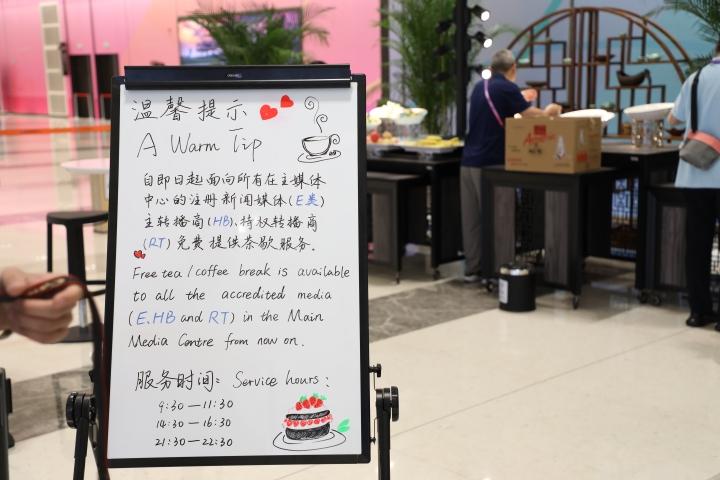 温馨提示
A Warm Tip
自即日起面向所有在主媒体
中心的注册新闻媒体(E类)
主转播商(HB)、持权转播商
(RT)免费提供茶歇服务.
Free tea/coffee break is available
to all the accredited media
(E.HB and RT) in the Main
Media Centre from now on.
服务时间: Service hours:
9:30—11:30
14:30—16:30
21:30—22:30